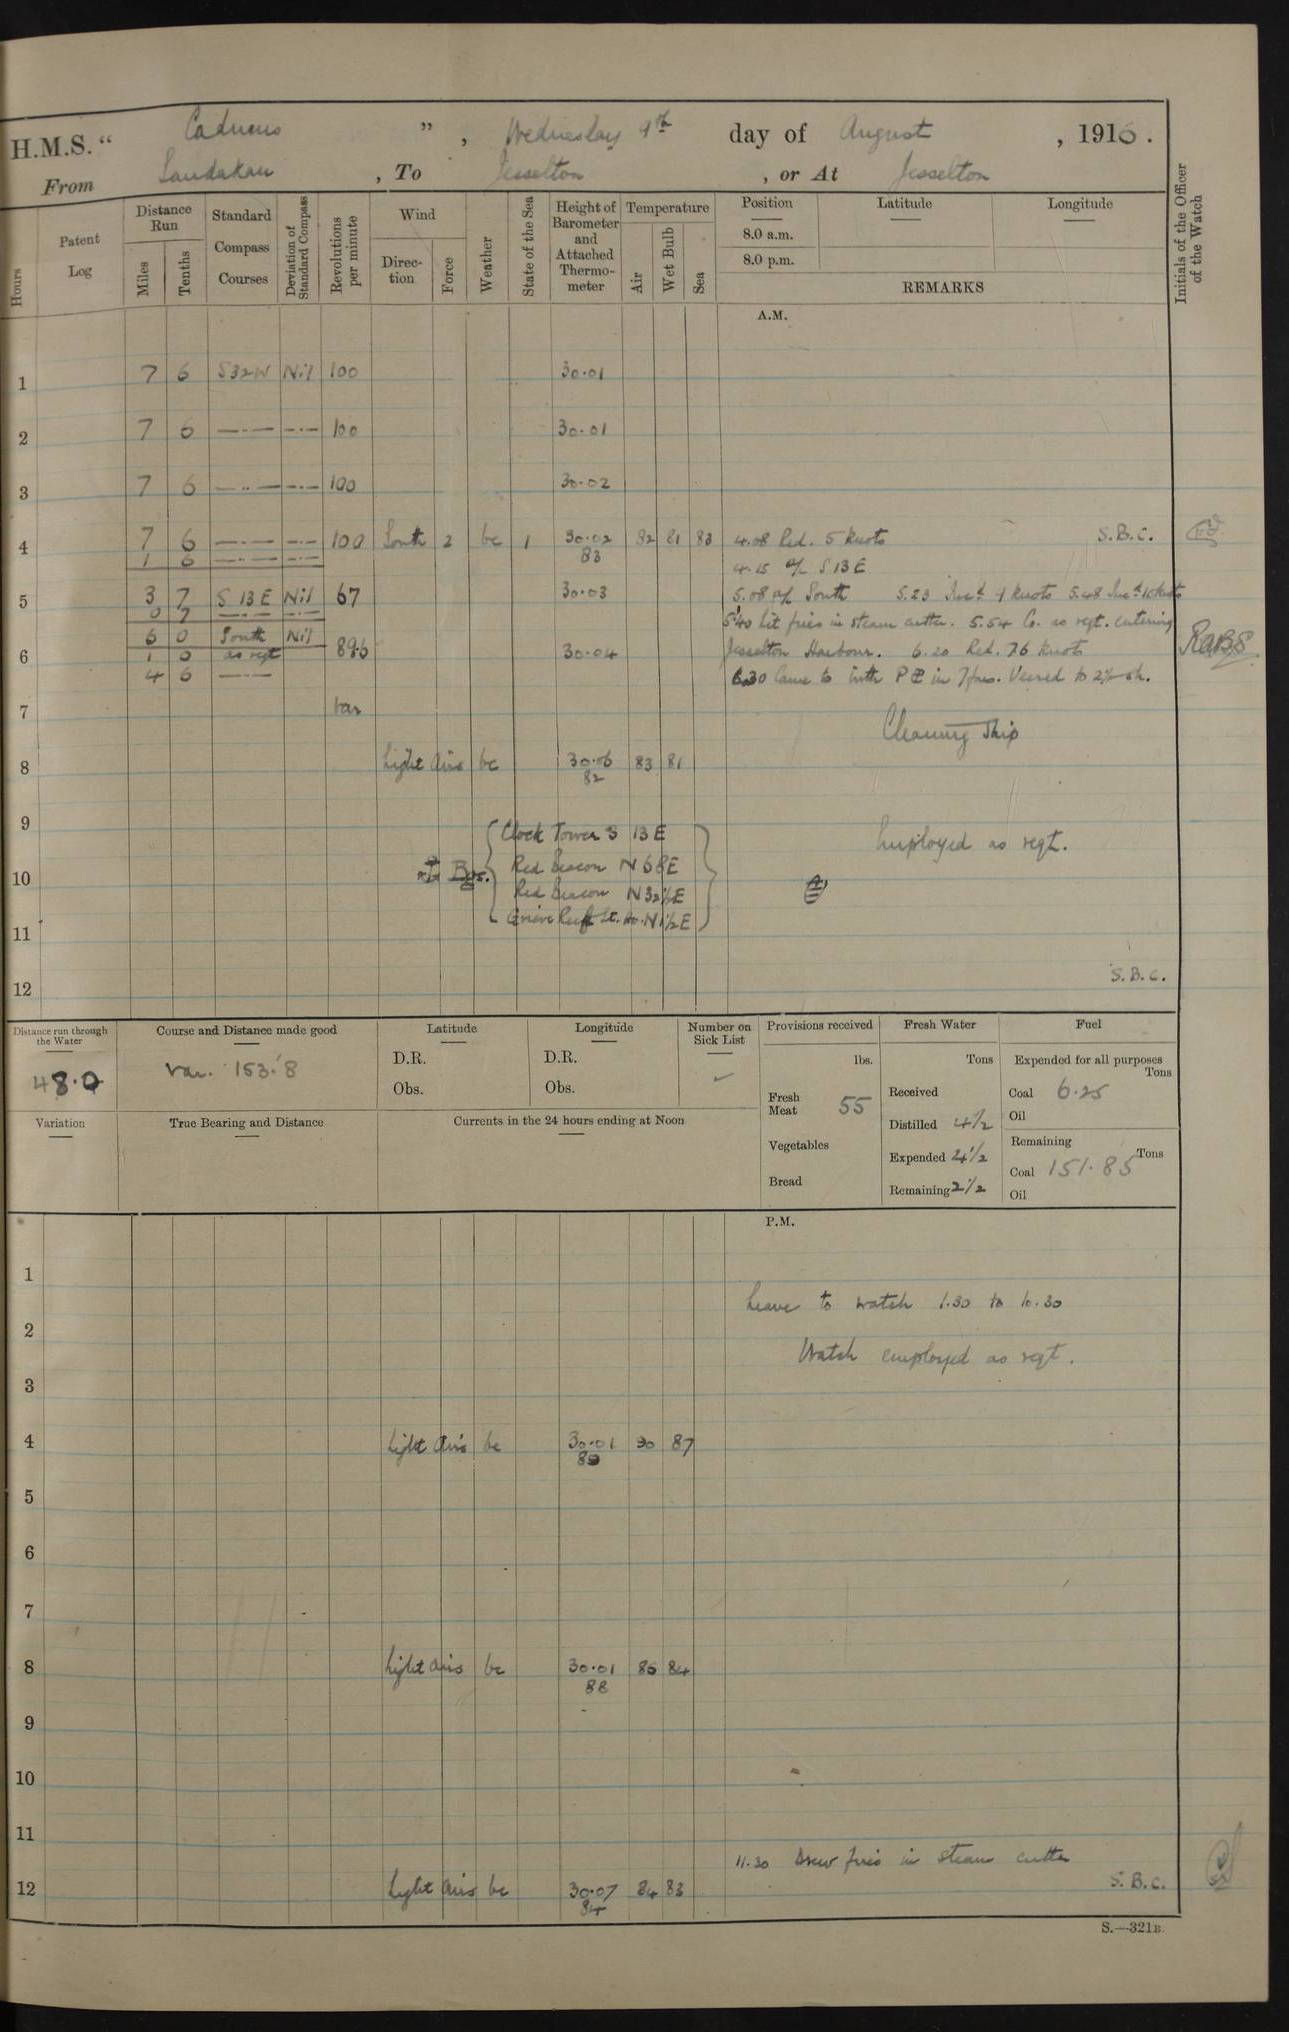 H.M.S. " Cadmus ", Wednesday 9th day of August, 1916.
From Sandakan, To Jesselton, or At Jesselton
Hours
Patent Log
Distance Run
Miles
Tenths
Standard Compass Courses
Deviation of Standard Compass
Revolutions per minute
Wind
Direc-tion
Force
Weather
State of the Sea
Height of Barometer and Attached Thermo-meter
Temperature
Air
Wet Bulb
Sea
Position
8.0 a.m.
8.0 p.m.
Latitude
Longitude
REMARKS
Initials of the Officer of the Watch
A.M.
1 7 6 S32W Nil 100 30.01
2 7 6 —·— —·— 100 30.01
3 7 6 —··— —·— 100 30.02
4 7 6 —·— —·— 100 South 2 bc 1 30.02 82 81 83 4.08 Red. 5 knots S.B.C.
1 6 —·— —·— 83 4.15 a/c S 13 E
5 3 7 S 13 E Nil 67 30.03 5.08 a/c South 5.23 Incd. 9 knots 5.48 Incd. 10 knots
0 7 —·— —·— 5.40 Lit fires in steam cutter. 5.54 Co. as reqt. entering
6 6 0 South Nil 89.6 30.04 Jesselton Harbour. 6.20 Red. 7.6 knots
1 0 as reqt
4 6 —— 6.30 Came to with P in 7 fms. Veered to 2½ sh.
7 var
Cleaning Ship
8 Light airs bc 30.06 83 81
82
9 Clock Tower S 13 E
Employed as reqt.
10 Bgs. Red Beacon N 68 E
Red Beacon N32½E
11 Grieve Reef Lt. Ho. N1½E
12 S.B.C.
Distance run through the Water
48.0
Course and Distance made good
var. 153.8
Latitude
D.R.
Obs.
Longitude
D.R.
Obs.
Number on Sick List
Provisions received
lbs.
Fresh Meat 55
Vegetables
Bread
Fresh Water
Tons
Received
Distilled 4½
Expended 4½
Remaining 2½
Fuel
Expended for all purposes
Tons
Coal 6.25
Oil
Remaining
Tons
Coal 151.85
Oil
Variation
True Bearing and Distance
Currents in the 24 hours ending at Noon
P.M.
1
Leave to watch 1.30 to 10.30
2
Watch employed as reqt.
3
4 Light airs bc 30.01 90 87
5
6
7
8 Light airs bc 30.01 86 84
88
9
10
11
11.30 Drew fires in steam cutter
12 Light airs bc 30.07 84 83 S.B.C.
84
S.—321B.